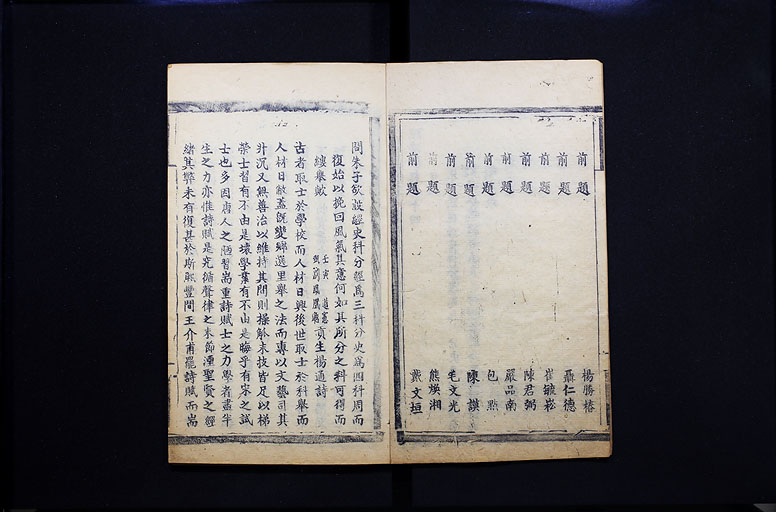 前題 楊勝椿
前題 聶仁德
前題 崔毓崧
前題 陳君弼
前題 嚴品南
前題 包點
前題 陳謨
前題 毛文光
前題 熊煥湘
前題 戴文垣
問朱子欲設經史科分經爲三科分史爲四科周而
復始以挽回風氣其意何如其所分之科可得而
縷舉歟 壬寅 貢生楊通詩
古者取士於學校而人材日興後世取士於科舉而
人材日敝蓋旣變鄉選里舉之法而專以文藝司其
升沉又無善治以維持其間則操觚末技皆足以梯
榮士習有不由是壞學業有不由是晦乎有宋之試
士也多因唐人之陋習嵩重詩賦士之力學者盡半
生之力亦惟詩賦是究循聲律之末節湮聖賢之經
緒其弊未有復甚於斯熙豐間王介甫罷詩賦而嵩